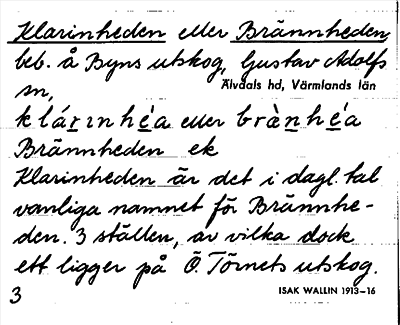 Klarinheden eller Brännheden,
beb. å Byns utskog, Gustav Adolfs
sn,
Älvdals hd, Värmlands län
klárınhéa eller brànhéa
Brännheden ek
Klarinheden är det i dagl. tal
vanliga namnet för Brännhe-
den. 3 ställen, av vilka dock
ett ligger på Ö. Törnets utskog.
3
ISAK WALLIN 1913-16